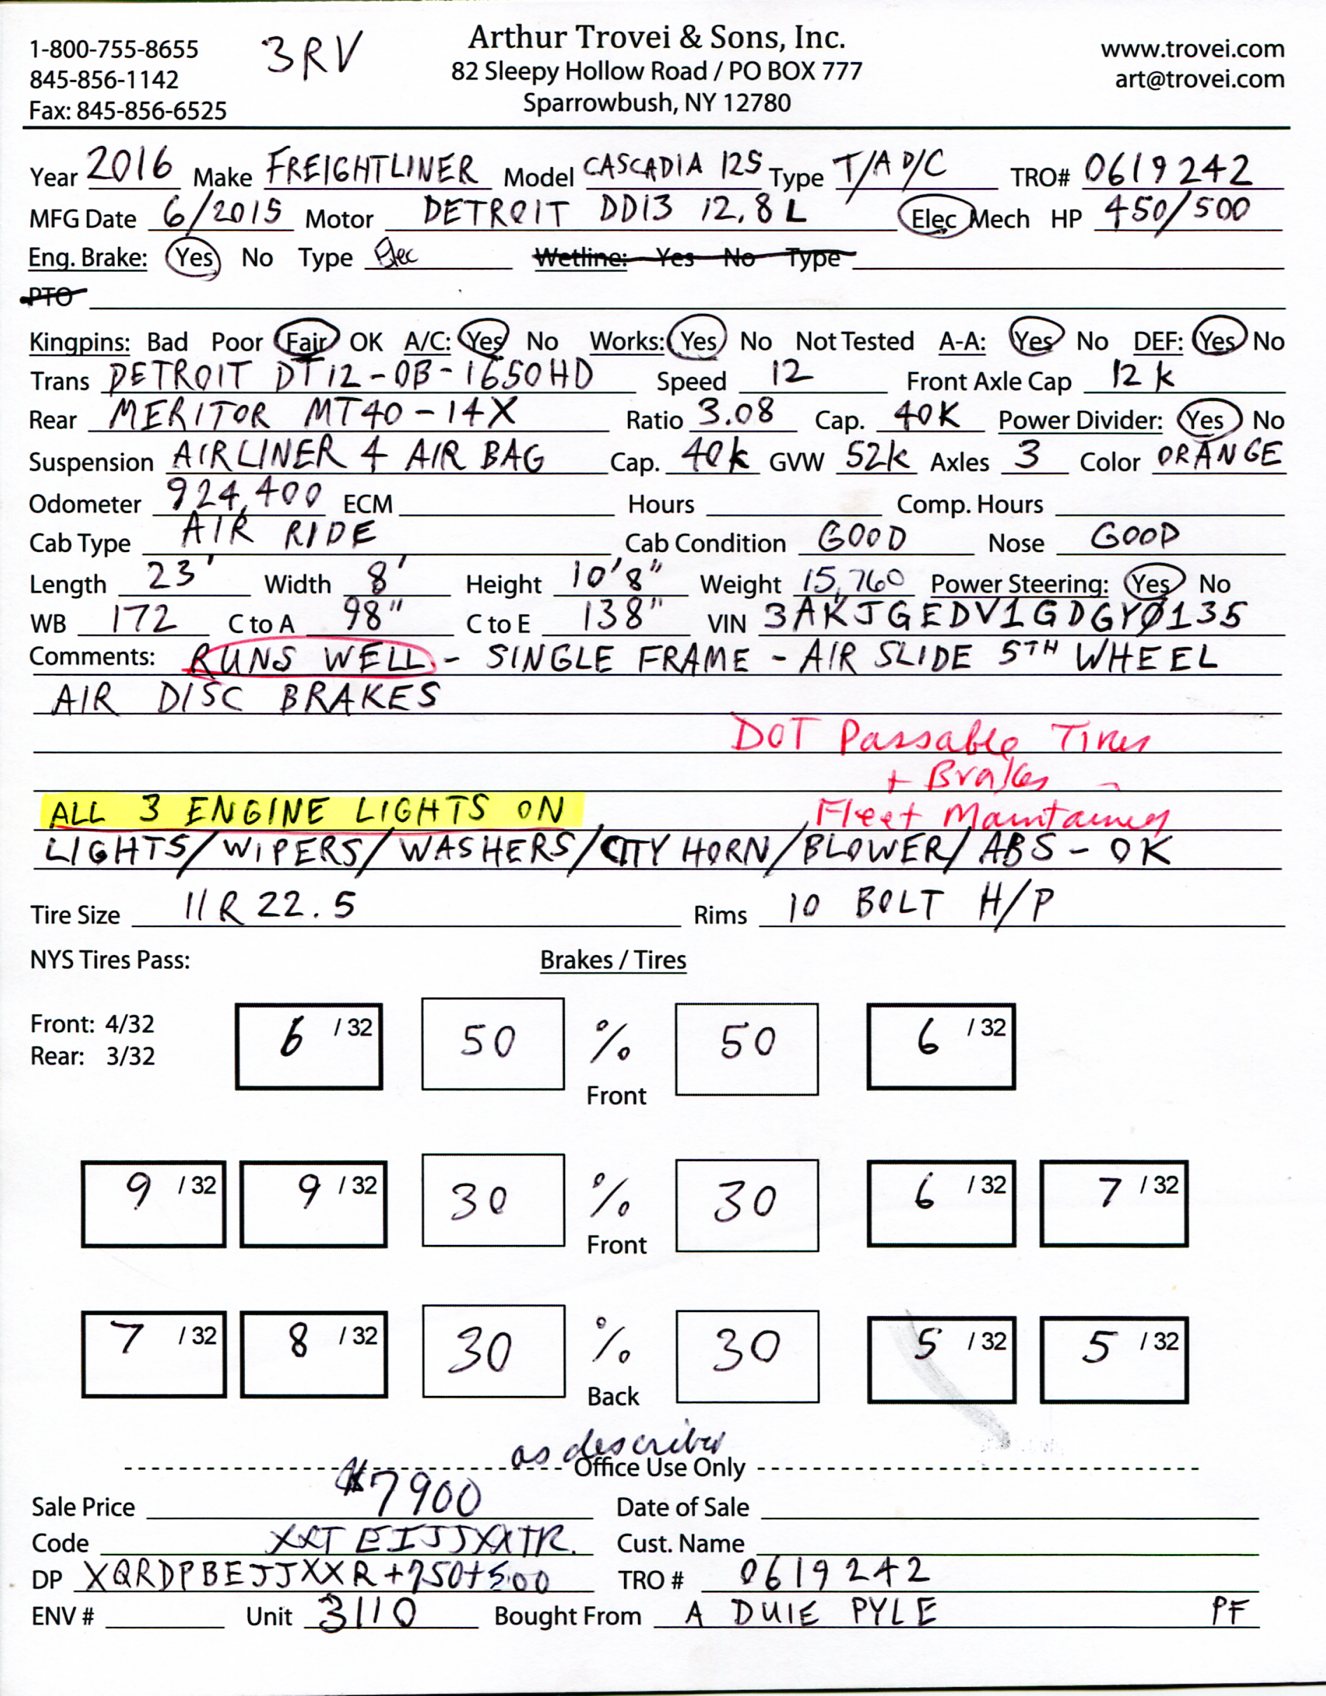 1-800-755-8655 3RV Arthur Trovei & Sons, Inc. www.trovei.com
845-856-1142 82 Sleepy Hollow Road / PO BOX 777 art@trovei.com
Fax: 845-856-6525 Sparrowbush, NY 12780
Year 2016 Make FREIGHTLINER Model CASCADIA 125 Type T/A D/C TRO# 0619242
MFG Date 6/2015 Motor DETROIT DD13 12.8L Elec Mech HP 450/500
Eng. Brake: Yes No Type Elec Wetline: Yes No Type
PTO
Kingpins: Bad Poor Fair OK A/C: Yes No Works: Yes No Not Tested A-A: Yes No DEF: Yes No
Trans DETROIT DT12-OB-1650HD Speed 12 Front Axle Cap 12K
Rear MERITOR MT40-14X Ratio 3.08 Cap. 40K Power Divider: Yes No
Suspension AIRLINER 4 AIR BAG Cap. 40K GVW 52K Axles 3 Color ORANGE
Odometer 924,400 ECM Hours Comp. Hours
Cab Type AIR RIDE Cab Condition GOOD Nose GOOD
Length 23' Width 8' Height 10'8" Weight 15,760 Power Steering: Yes No
WB 172 C to A 98" C to E 138" VIN 3AKJGEDV1GDGY0135
Comments: RUNS WELL - SINGLE FRAME - AIR SLIDE 5TH WHEEL
AIR DISC BRAKES
DOT Passable Tires
+ Brakes -
ALL 3 ENGINE LIGHTS ON Fleet Maintained
LIGHTS/WIPERS/WASHERS/CITY HORN/BLOWER/ABS - OK
Tire Size 11R 22.5 Rims 10 BOLT H/P
NYS Tires Pass: Brakes / Tires
Front: 4/32 6 /32 50 % 50 6 /32
Rear: 3/32
Front
9 /32 9 /32 30 % 30 6 /32 7 /32
Front
7 /32 8 /32 30 % 30 5 /32 5 /32
Back
as described
Office Use Only
Sale Price $7900 Date of Sale
Code Cust. Name
DP XQRDPBEJJXXR+750+500 TRO # 0619242
ENV # Unit 3110 Bought From A DUIE PYLE PF